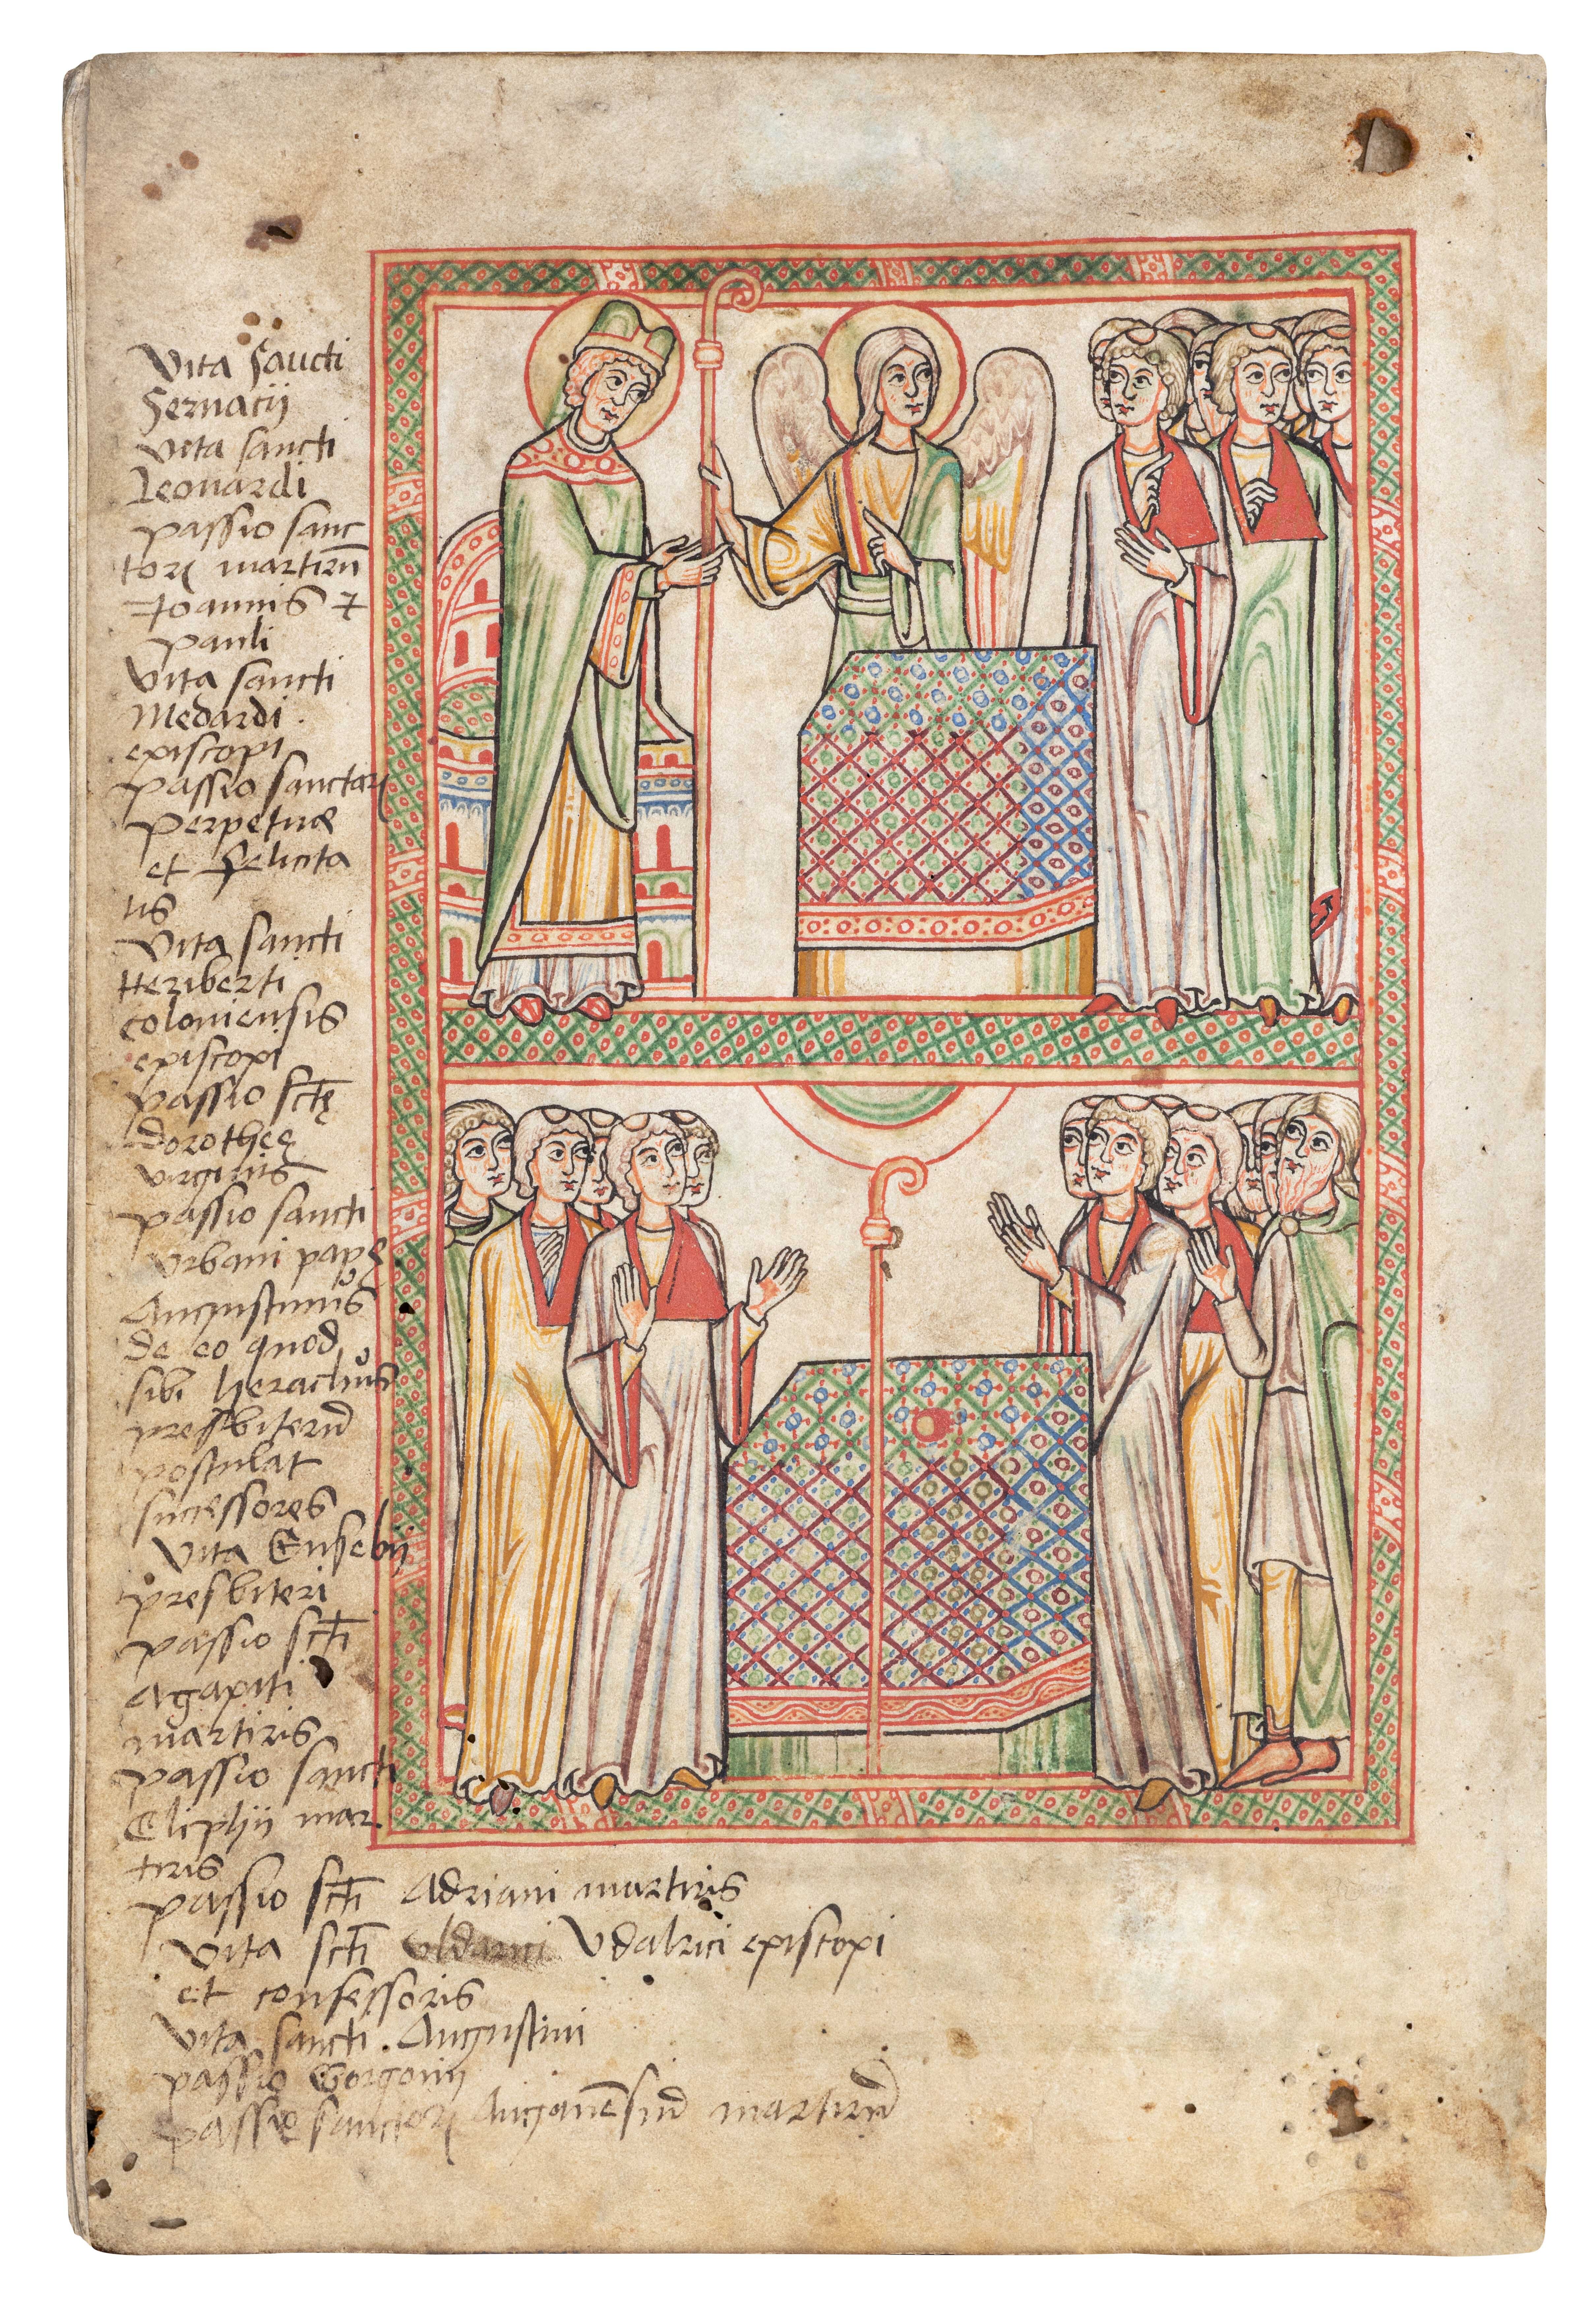 Vita Sancti
Servacij
Vita sancti
Leonardi
passio sanc
torꝝ martirũ
Ioannis ⁊
pauli
Vita sancti
Medardi
episcopi
passio sanctorꝝ
perpetuæ
et felicita
tis
Vita sancti
Heriberti
coloniensis
episcopi
passio sctę
dorotheę
virginis
passio sancti
Urbani papę
Augustinus
de eo quod
sibi heraclius
presbiterũ
postulat
successores
Vita Eusebij
presbiteri
passio scti
Agapiti
martiris
passio sancti
Eliphij mar
tiris
passio scti Adriani martiris
Vita scti Udalrici episcopi
et confessoris
Vita sancti Augustini
passio Gorgonij
passio sanctorꝝ martirũ